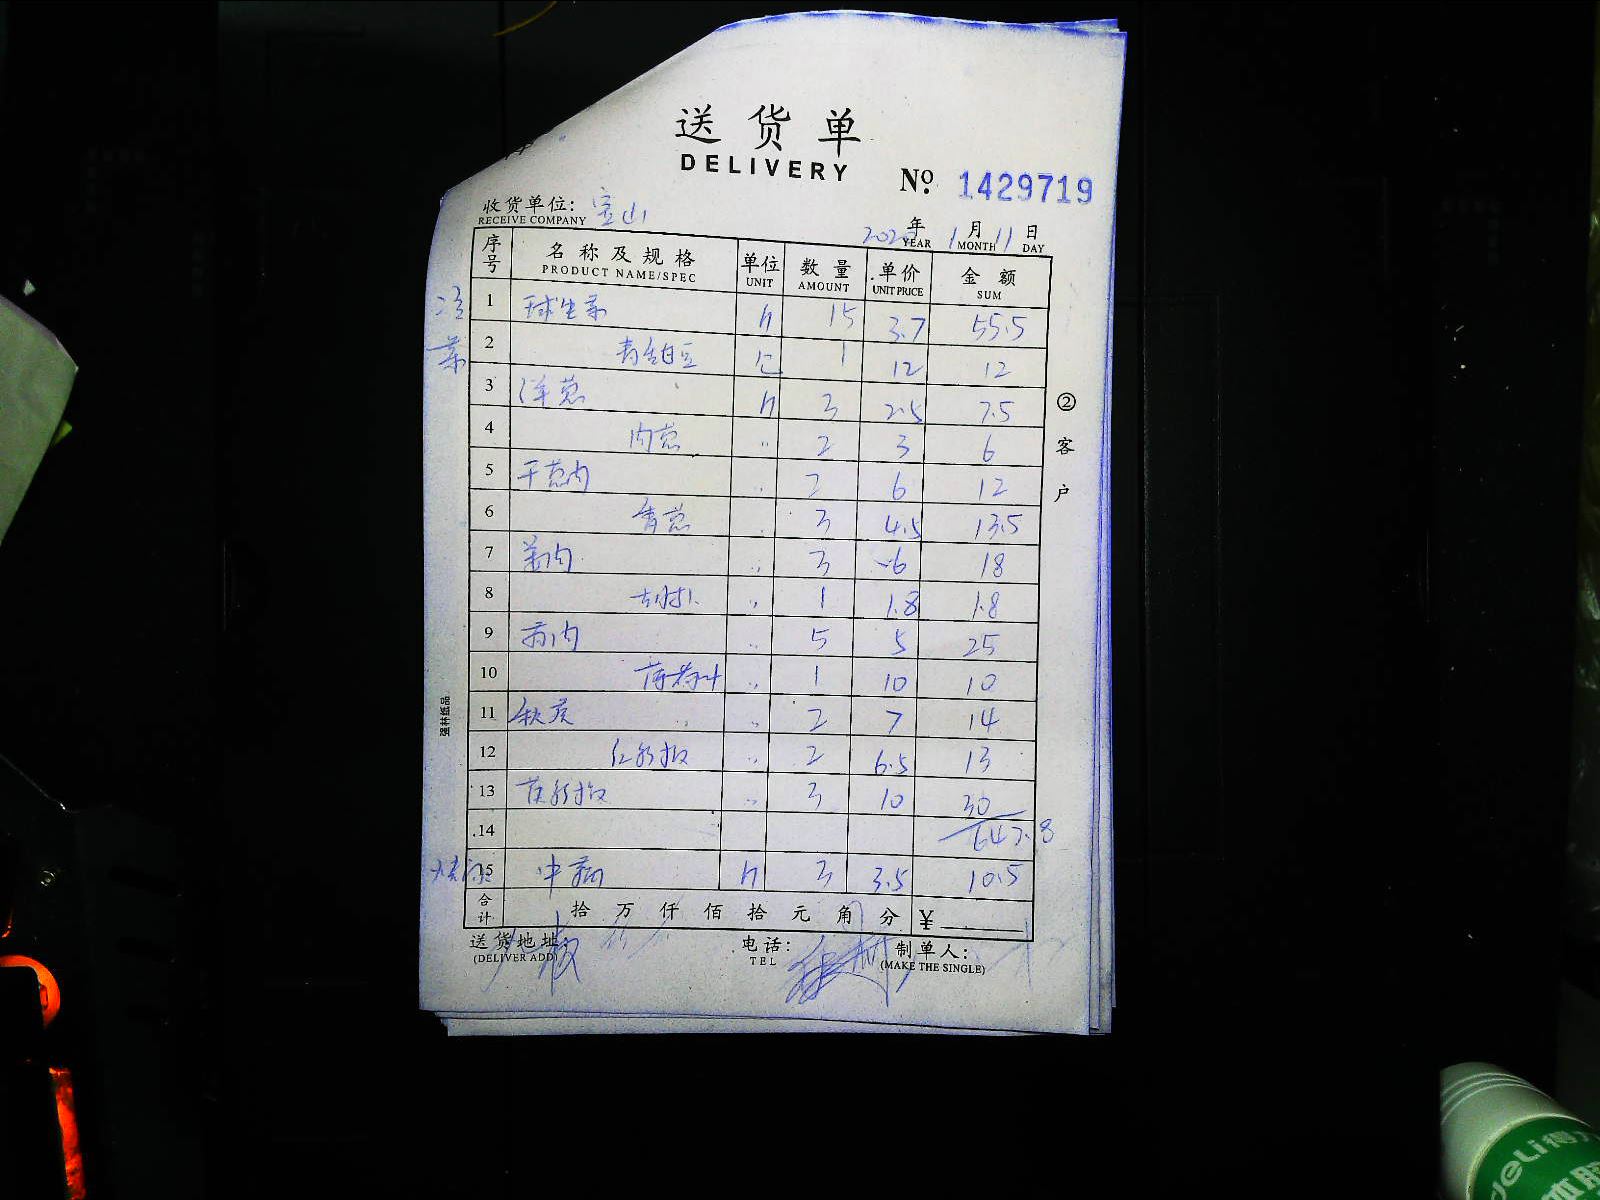 送货单
DELIVERY
№: 1429719
收货单位: 宝山
RECEIVE COMPANY
年 1 月 11 日
YEAR MONTH DAY
序号 名称及规格 单位 数量 单价 金额
PRODUCT NAME/SPEC UNIT AMOUNT UNIT PRICE SUM
1 球生菜 斤 15 3.7 55.5
2 青甜豆 包 1 12 12
菜
3 洋葱 斤 3 2.5 7.5
4 肉葱 〃 2 3 6
5 干葱肉 〃 2 6 12
6 香葱 〃 3 4.5 13.5
7 姜肉 〃 3 6 18
8 〃 1 1.8 1.8
9 〃 5 5 25
10 薄荷叶 〃 1 10 10
11 秋葵 〃 2 7 14
12 红彩椒 〃 2 6.5 13
13 黄彩椒 〃 3 10 30
14 647.8
15 斤 3 3.5 10.5
合计 拾 万 仟 佰 拾 元 角 分 ¥
送货地址:
(DELIVER ADD)
电话:
TEL
制单人:
(MAKE THE SINGLE)
② 客户
强林纸品
deli 得力